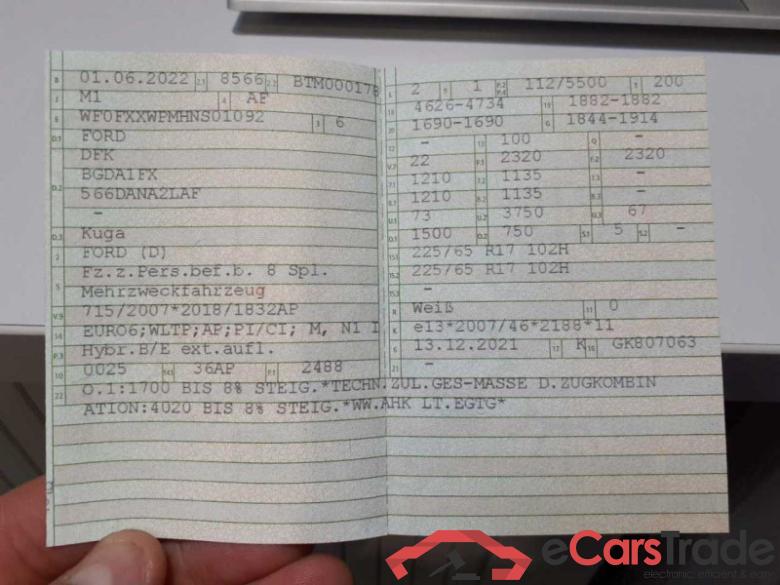 B 01.06.2022 2.1 8566 2.2 BTM000178
J M1 4 AF
E WF0FXXWPMHNS01092 3 6
D.1 FORD
DFK
D.2 BGDA1FX
566DANA2LAF
-
D.3 Kuga
2 FORD (D)
5 Fz.z.Pers.bef.b. 8 Spl.
Mehrzweckfahrzeug
V.9 715/2007*2018/1832AP
14 EURO6;WLTP;AP;PI/CI; M, N1 I
P.3 Hybr.B/E ext.aufl.
10 0025 14.1 36AP P.1 2488
L 2 9 1 P.2 P.4 112/5500 T 200
18 4626-4734 19 1882-1882
20 1690-1690 G 1844-1914
12 - 13 100 Q -
V.7 22 F.1 2320 F.2 2320
7.1 1210 7.2 1135 7.3 -
8.1 1210 8.2 1135 8.3 -
U.1 73 U.2 3750 U.3 67
O.1 1500 O.2 750 S.1 5 S.2 -
15.1 225/65 R17 102H
15.2 225/65 R17 102H
15.3 -
R Weiß 11 0
K e13*2007/46*2188*11
6 13.12.2021 17 K 16 GK807063
21 -
22 O.1:1700 BIS 8% STEIG.*TECHN.ZUL.GES-MASSE D.ZUGKOMBIN
ATION:4020 BIS 8% STEIG.*WW.AHK LT.EGTG*
eCarsTrade
electronic, efficient & easy